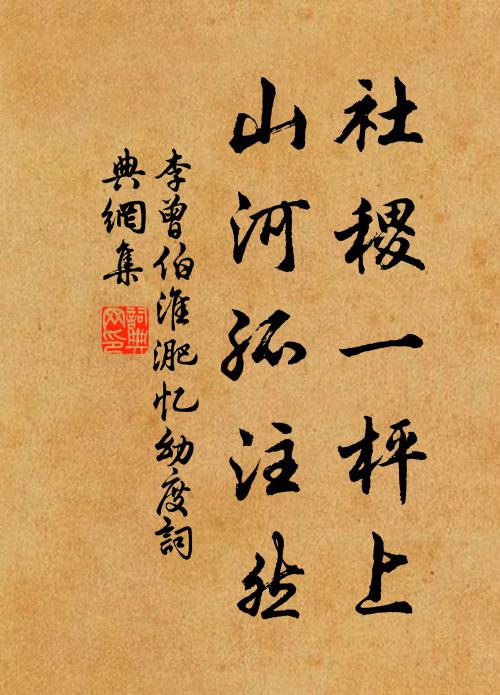 社稷一枰上
山河孤注然
李曾伯淮淝忆幼度詞
典網集
詞典
网印